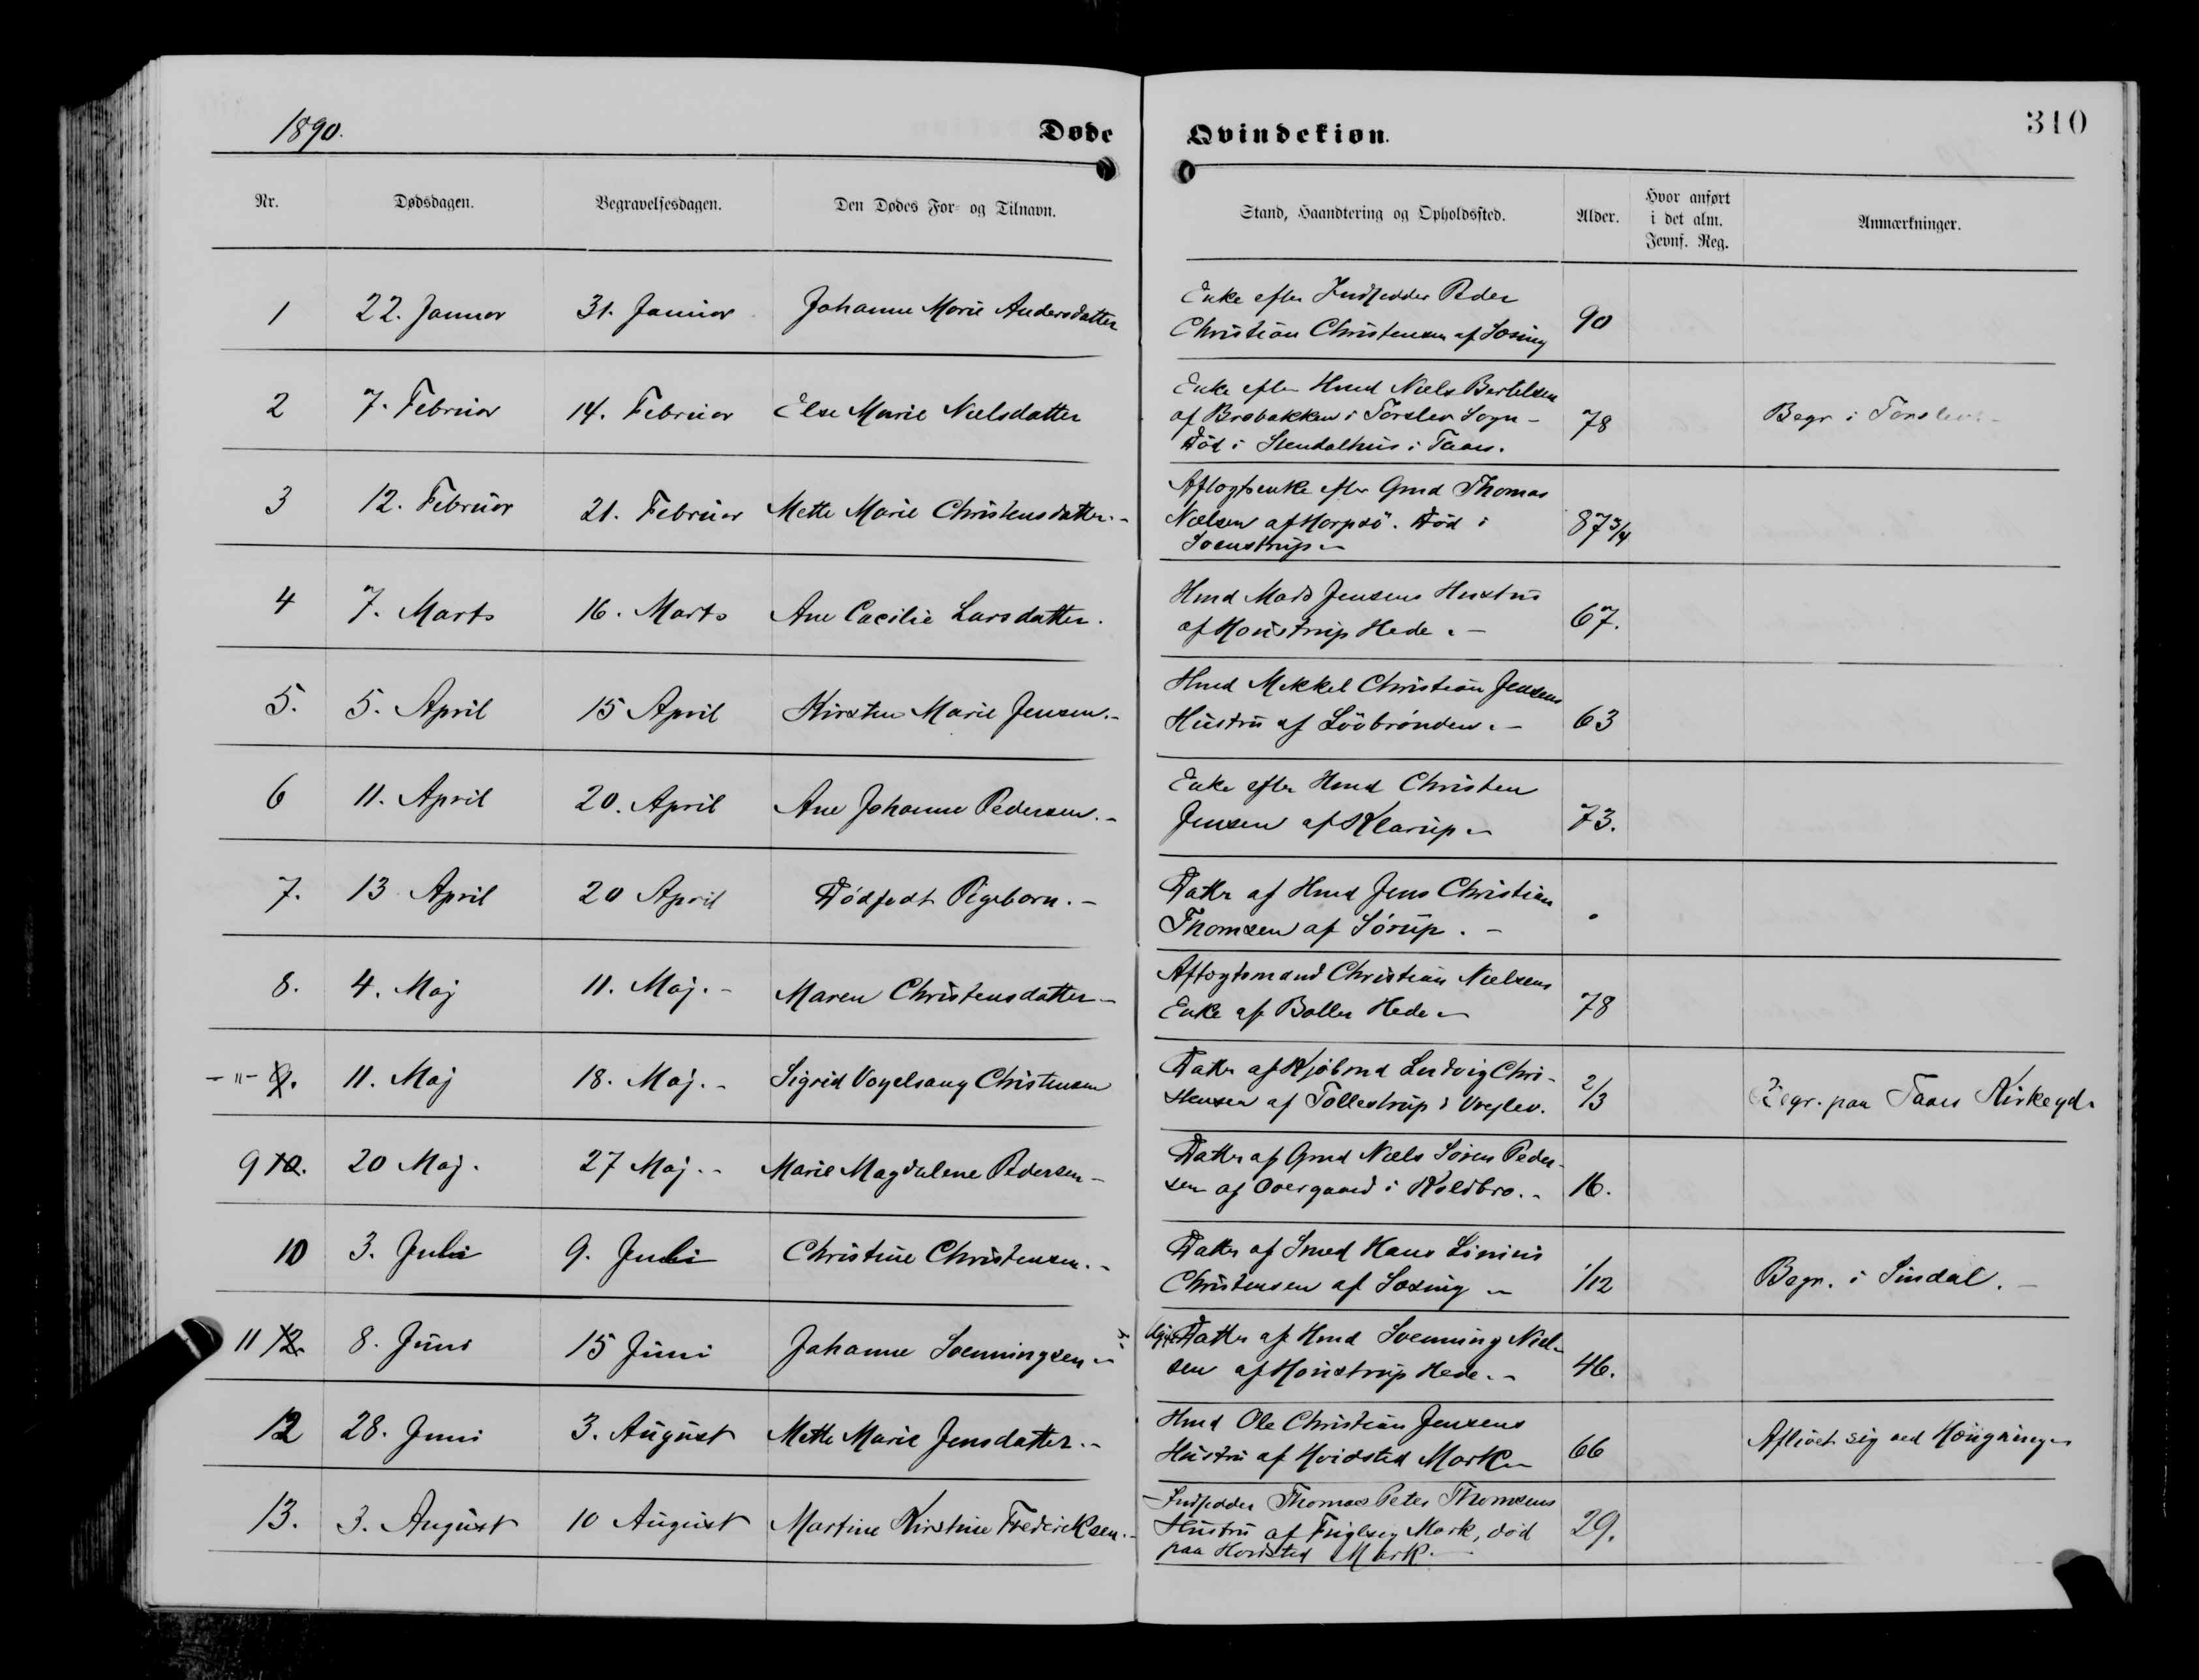 1890.
Døde Qvindekiøn.
310
Nr. Dødsdagen. Begravelsesdagen. Den Dødes For- og Tilnavn. Stand, Haandtering og Opholdssted. Alder. Hvor anført i det alm. Jevnf. Reg. Anmærkninger.
1 22. Januar 31. Januar Johanne Marie Andersdatter Enke efter Indsidder Peder
Christian Christensen af Sæsing 90
2 7. Februar 14. Februar Else Marie Nielsdatter Enke efter Hmd Niels Bertelsen
af Brobakken i Torslev Sogn - 78 Begr i Torslev. -
Død i Stendalhus i Taars.
3 12. Februar 21. Februar Mette Marie Christensdatter. - Aftægtsenke efter Gmd Thomas
Nielsen af Horpsø. Død i 87 3/4
Svenstrup -
4 7. Marts 16. Marts Ane Cæcilie Larsdatter. Hmd Mads Jensens Hustru
af Houstrup Hede. - 67.
5. 5. April 15 April Kirsten Marie Jensen. - Hmd Mikkel Christian Jensens
Hustru af Lööbrønden. - 63
6 11. April 20. April Ane Johanne Pedersen. - Enke efter Hmd Christen
Jensen af Klarup - 73.
7. 13 April 20 April Dødfødt Pigebarn. - Datter af Hmd Jens Christian
Thomsen af Sörup. -
8. 4. Maj 11. Maj. - Maren Christensdatter - Aftægtsmand Christian Nielsens
Enke af Boller Hede - 78
- " - 9. 11. Maj 18. Maj. - Sigrid Vogelsang Christensen Datter af Kjöbmd Ludvig Chri-
stensen af Tollestrup i Vrejlev. 2/3 Begr. paa Taars Kirkegd.
9 10. 20 Maj. 27 Maj. - Marie Magdalene Pedersen - Datter af Gmd Niels Sören Peder-
sen af Overgaard i Koldbro. - 16.
10 3. Juli 9. Juli Christine Christensen. - Datter af Smed Hans Linius
Christensen af Sæsing - 1/12 Begr. i Sindal. -
11 12. 8. Juni 15 Juni Johanne Svenningsen - Ugift Datter af Hmd Svenning Niel-
sen af Houstrup Hede. - 46.
12 28. Juni 3. August Mette Marie Jensdatter. - Hmd Ole Christian Jensens
Hustru af Hvidsted Mark - 66 Aflivet sig ved Hængning -
13. 3. August 10 August Martine Kirstine Frederiksen. - Indsidder Thomas Peter Thomsens
Hustru af Fuglsig Mark, død 29.
paa Hvidsted Mark. -